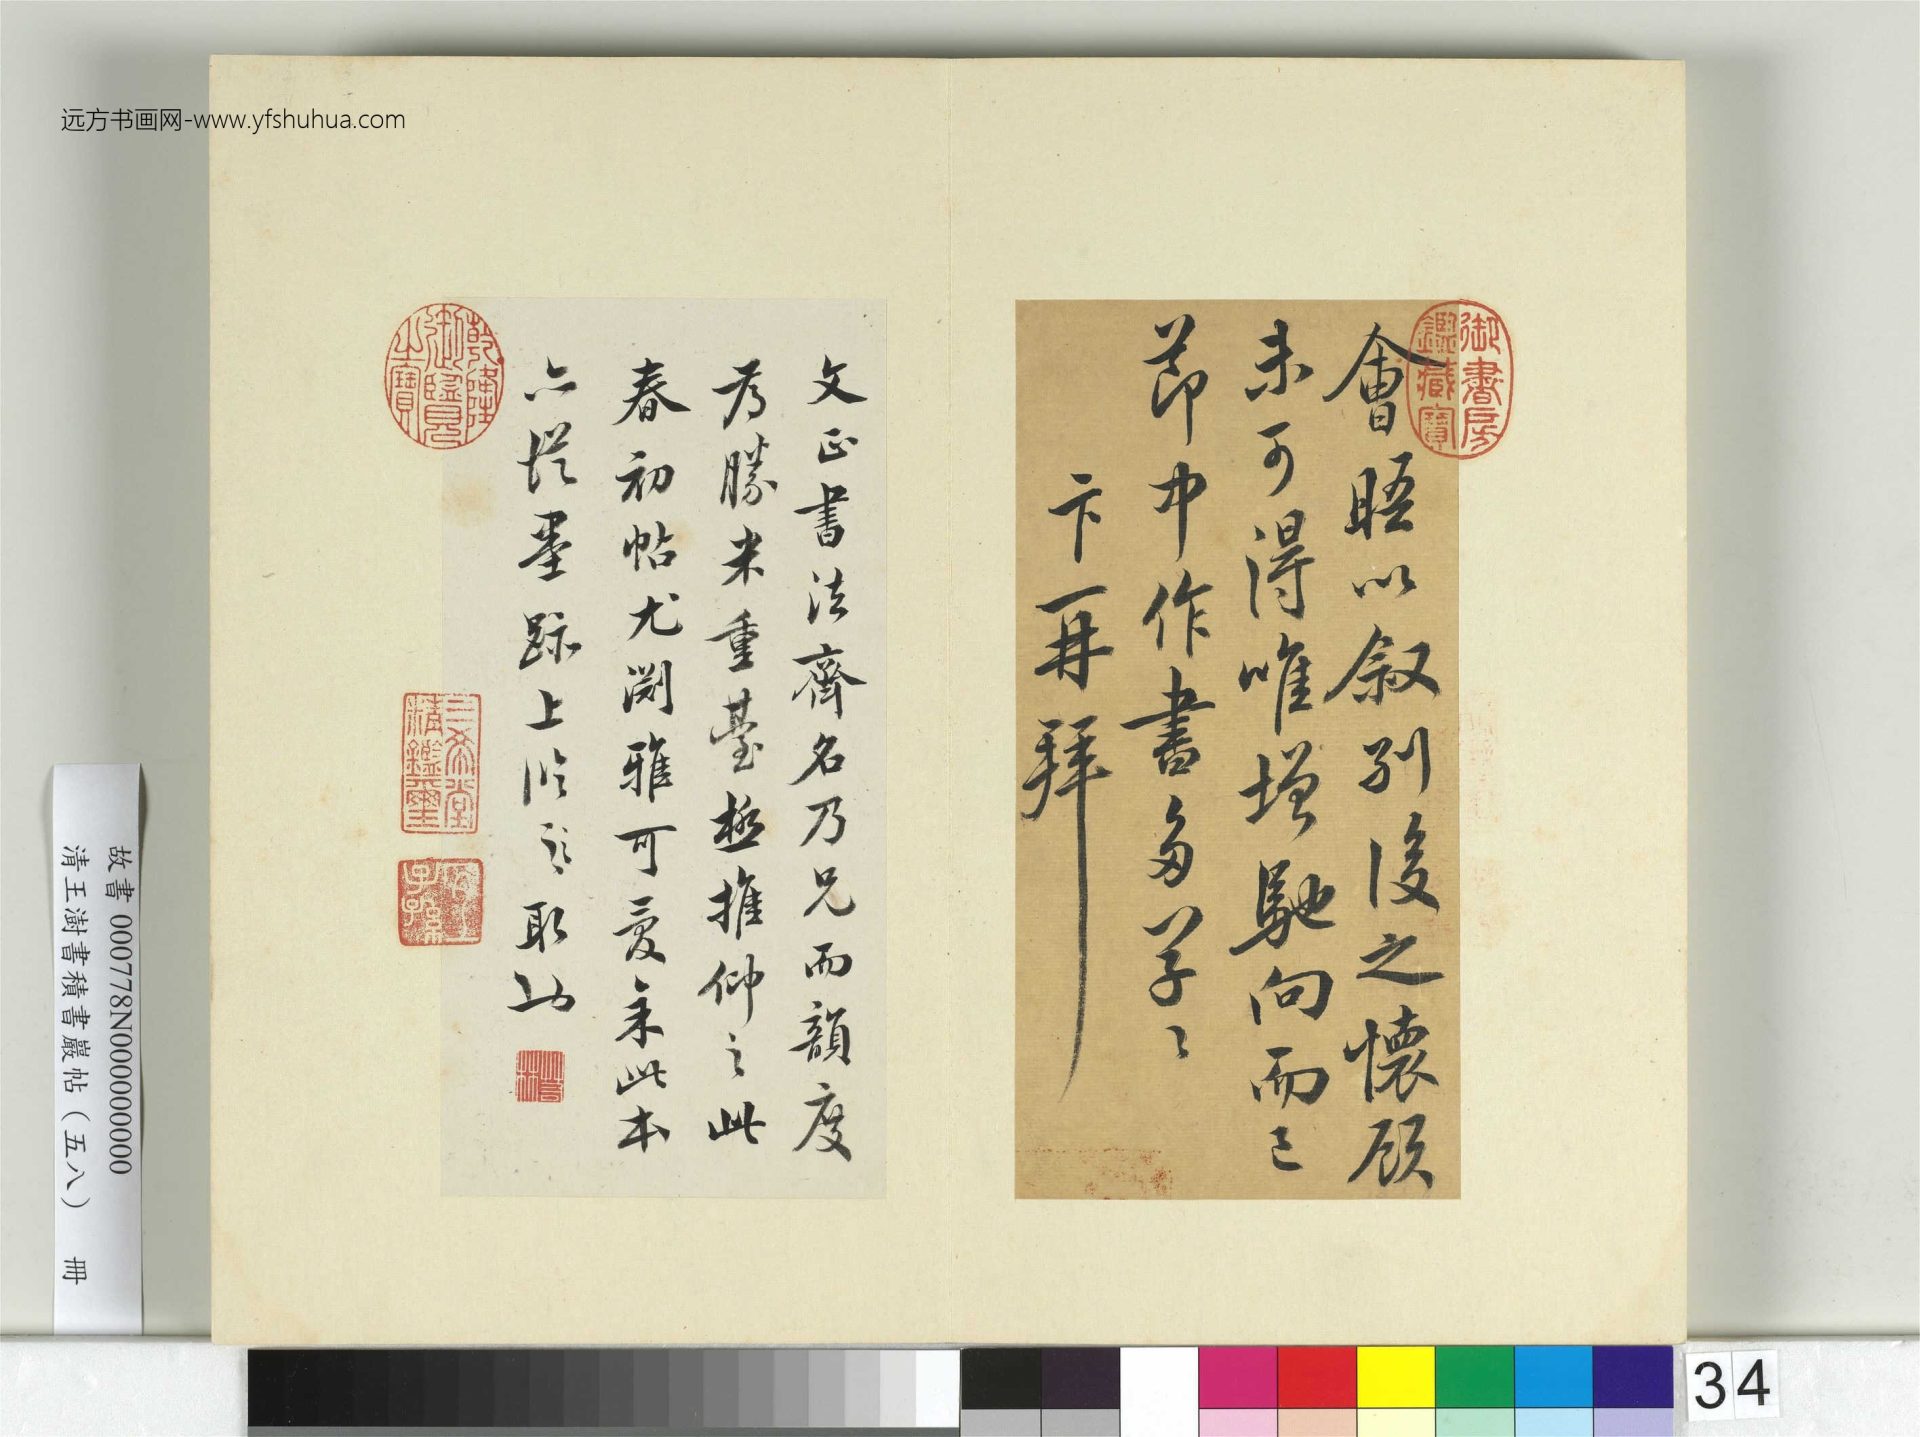 远方书画网-www.yfshuhua.com
會晤以叙别後之懷顧
未可得唯增馳向而已
節中作書多草〻
卞再拜
文正書法齊名乃兄而韻度
為勝米重臺極推仰之此
春初帖尤淵雅可愛余此本
亦從墨跡上臨之取功
御書房
鑑藏寶
乾隆
御覽
之寶
三希堂
精鑑璽
宜
子孫
故書 000778N000000000
清王澍書積書巖帖(五八) 冊
34